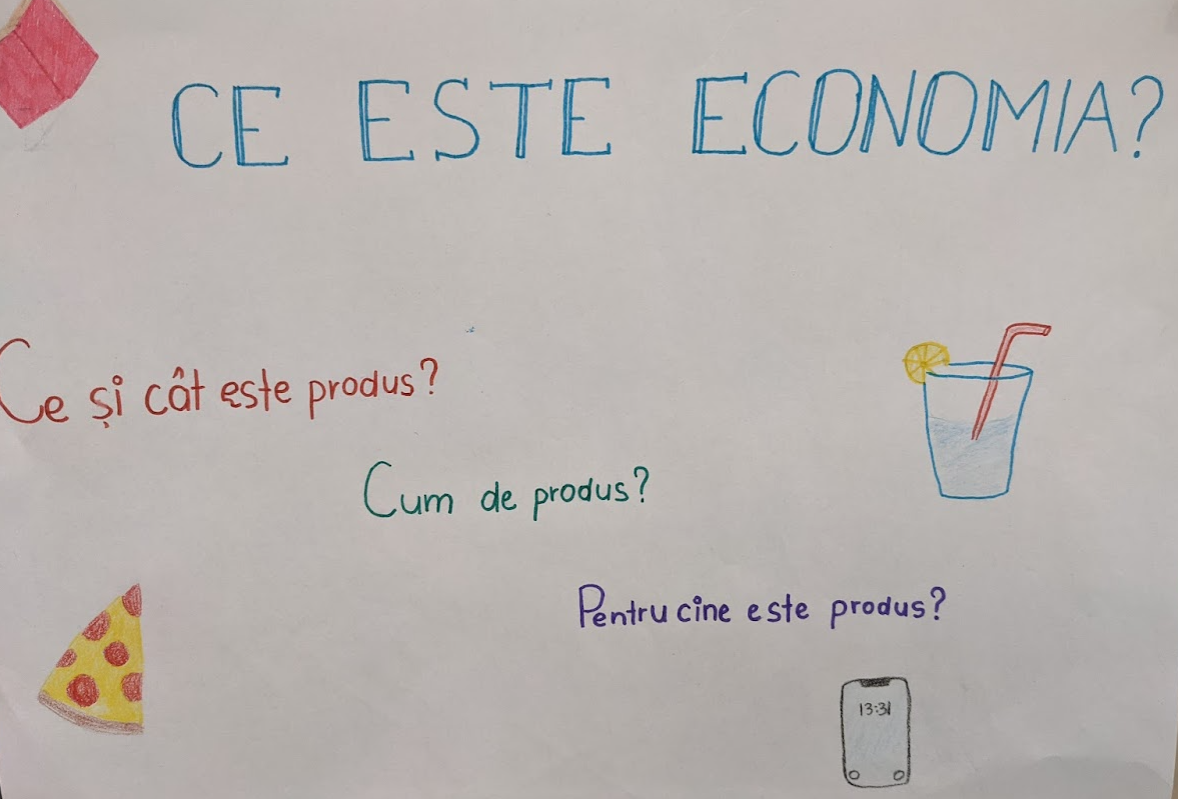 CE ESTE ECONOMIA?
Ce și cât este produs?
Cum de produs?
Pentru cine este produs?
13:31